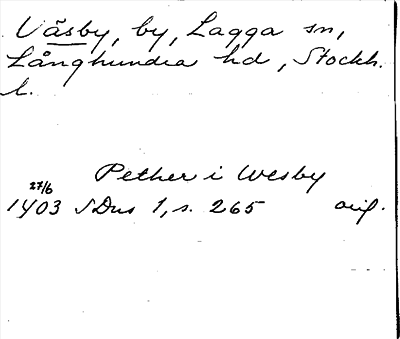 Väsby, by, Lagga sn,
Långhundra hd, Stockh.
l.
Pether i Wesby
27/6
1403 SDns 1, s. 265 orig.